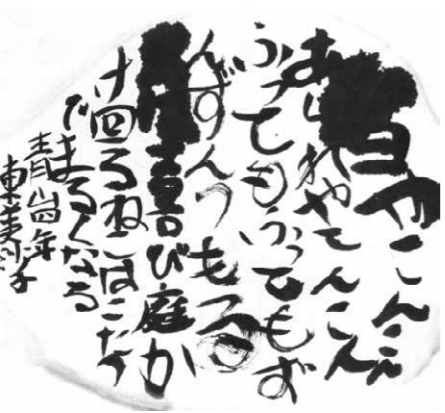 雪やこんこ
あられやこんこ
ふってもふってもず
んずんつもる
喜び庭か
け回るねこはこたつ
でまるくなる